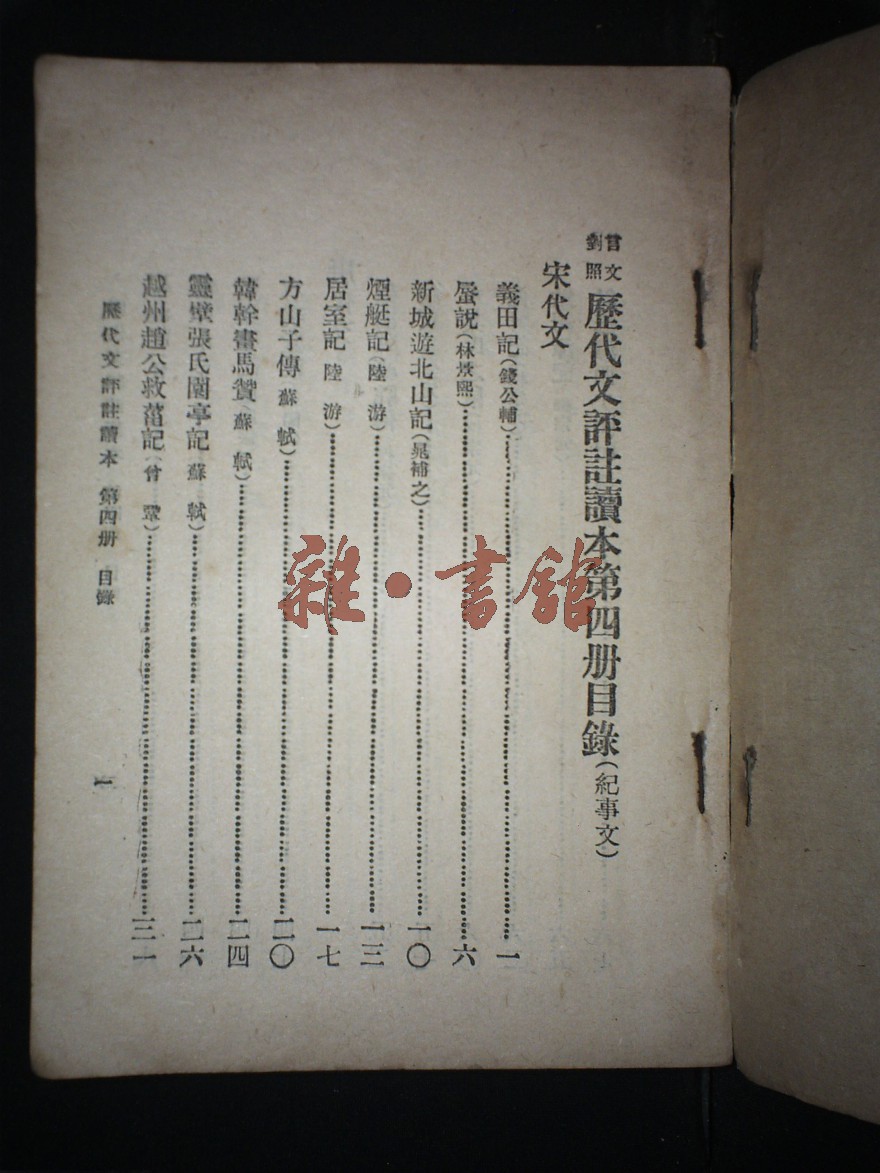 言文對照 歷代文評註讀本第四册目錄(紀事文)
宋代文
義田記(錢公輔)……一
蜃說(林景熙)……六
新城遊北山記(晁補之)……一〇
煙艇記(陸游)……一三
居室記(陸游)……一七
方山子傳(蘇軾)……二〇
韓幹畫馬贊(蘇軾)……二四
靈壁張氏園亭記(蘇軾)……二六
越州趙公救菑記(曾鞏)……三一
歷代文評註讀本 第四册 目錄 一
雜·書館